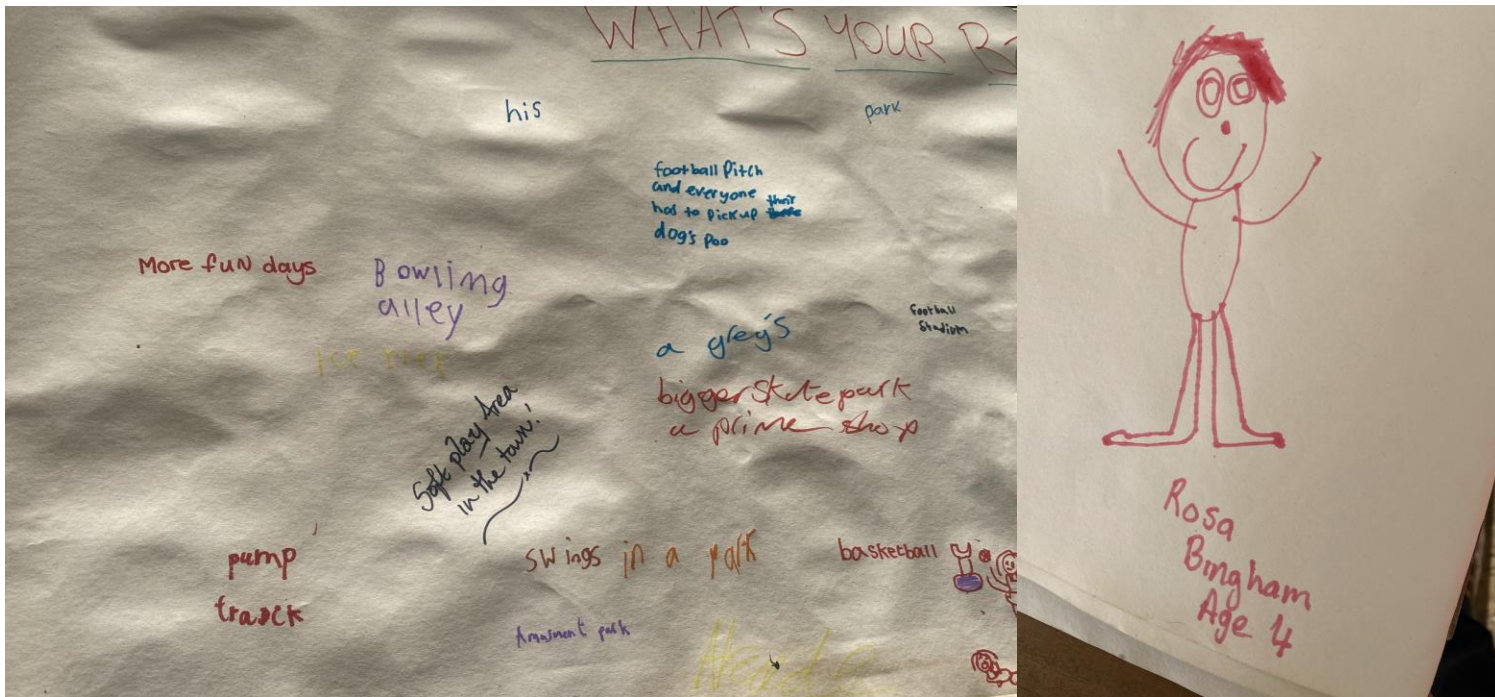 WHAT'S YOUR
his
park
football Pitch
and everyone
has to pick up their
dog's poo
More fun days
Bowling
alley
football
Stadium
a greg's
ice rink
bigger skate park
a prime shop
Soft play Area
in the town!
pump
track
swings in a park
basketball
Amusment park
Rosa
Bingham
Age 4